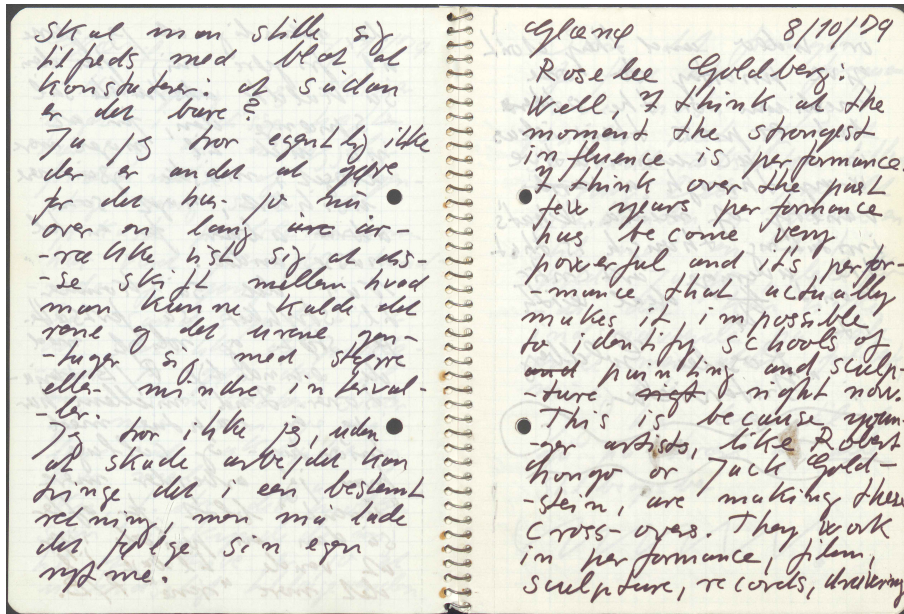 Skal man stille sig
tilfreds med blot at
konstatere: at sådan
er det bare?
Ja jeg tror egentlig ikke
der er andet at gøre
for det har jo nu
over en lang år-
-række vist sig at dis-
-se skift mellem hvad
man kunne kalde det
rene og det urene gen-
-tager sig med større
eller mindre interval-
-ler.
Jeg tror ikke jeg, uden
at skade arbejdet kan
tvinge det i een bestemt
retning, men må lade
det følge sin egen
rytme.
8/10/79
Roselee Goldberg:
Well, I think at the
moment the strongest
influence is performance.
I think over the past
few years performance
has become very
powerful and it's perfor-
-mance that actually
makes it impossible
to identify schools of
and painting and sculp-
-ture right right now.
This is because youn-
-ger artists, like Robert
Longo or Jack Gold-
-stein, are making these
cross-overs. They work
in performance, film,
sculpture, records, drawing